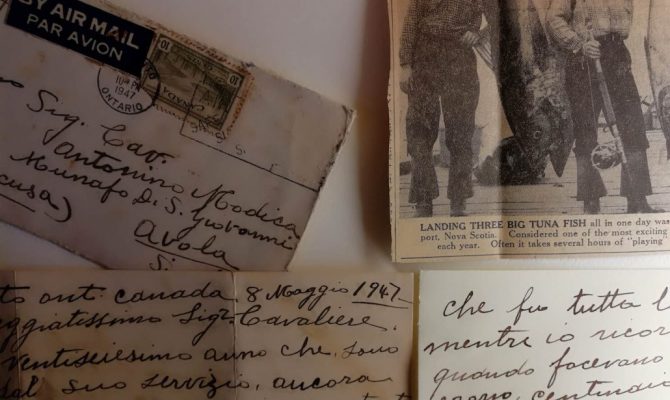 BY AIR MAIL
PAR AVION
10
10
CANADA
1947
ONTARIO
Sig. Cav.
Antonino Modica
Munafo Di S. Giovanni
Avola
LANDING THREE BIG TUNA FISH all in one day was
port, Nova Scotia. Considered one of the most exciting
each year. Often it takes several hours of "playing
to ont. canada 8 Maggio 1947
eggiatissimo Sigr. Cavaliere.
ventiseiesimo anno che sono
dal suo servizio, ancora
che fu tutta l
mentre io ricor
quando facevano